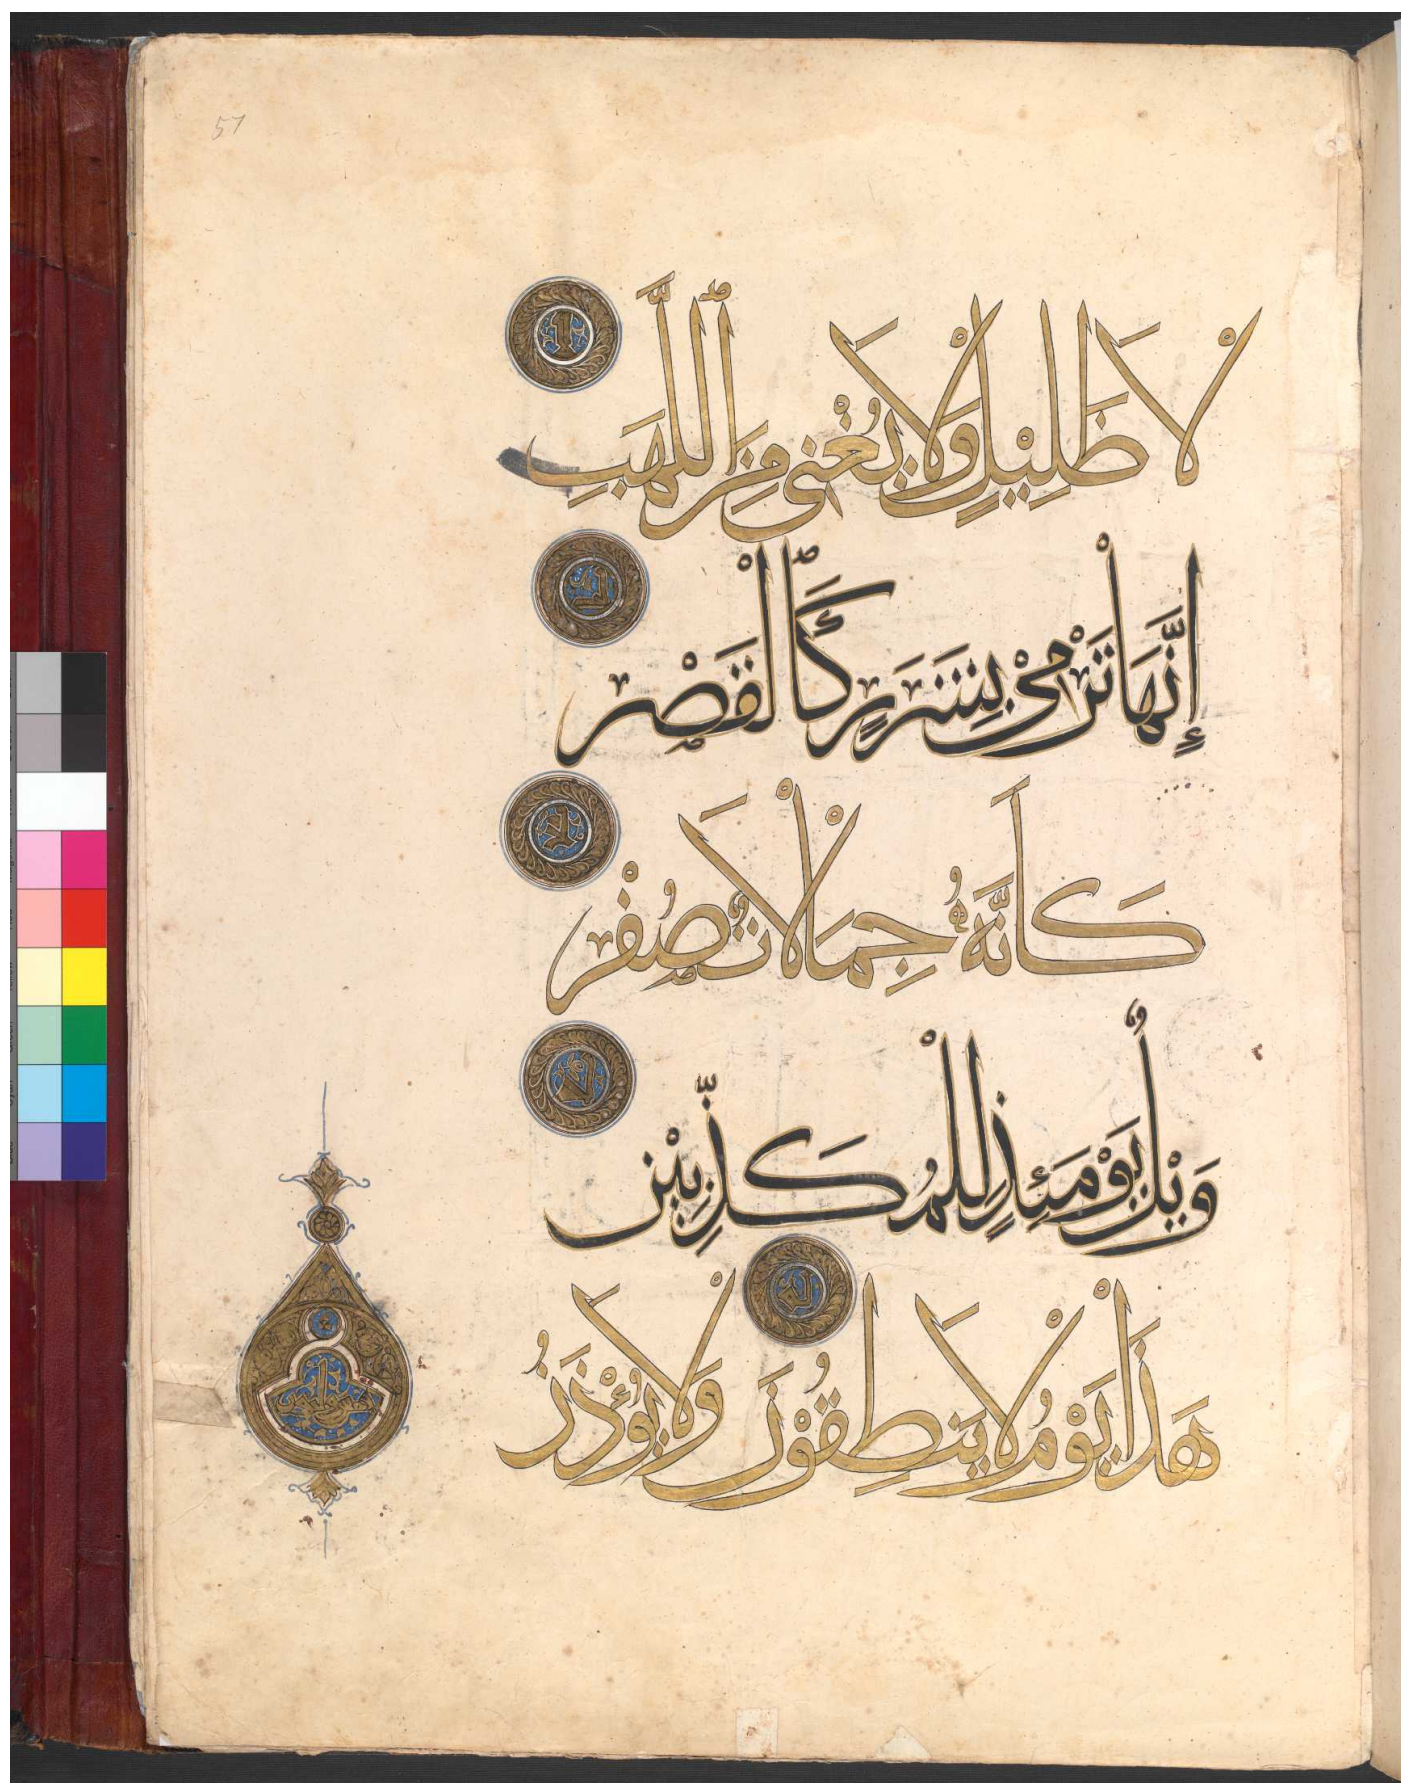 57
لَا ظَلِيْلٍ وَلَا يُغْنِى مِنَ ٱللَّهَبِ
إِنَّهَا تَرْمِىْ بِشَرَرٍ كَٱلْقَصْرِ
كَأَنَّهُ جِمَالَاتٌ صُفْرٌ
وَيْلٌ يَوْمَئِذٍ لِلْمُكَذِّبِيْنَ
هَذَا يَوْمُ لَا يَنطِقُوْنَ وَلَا يُوْذَنُ